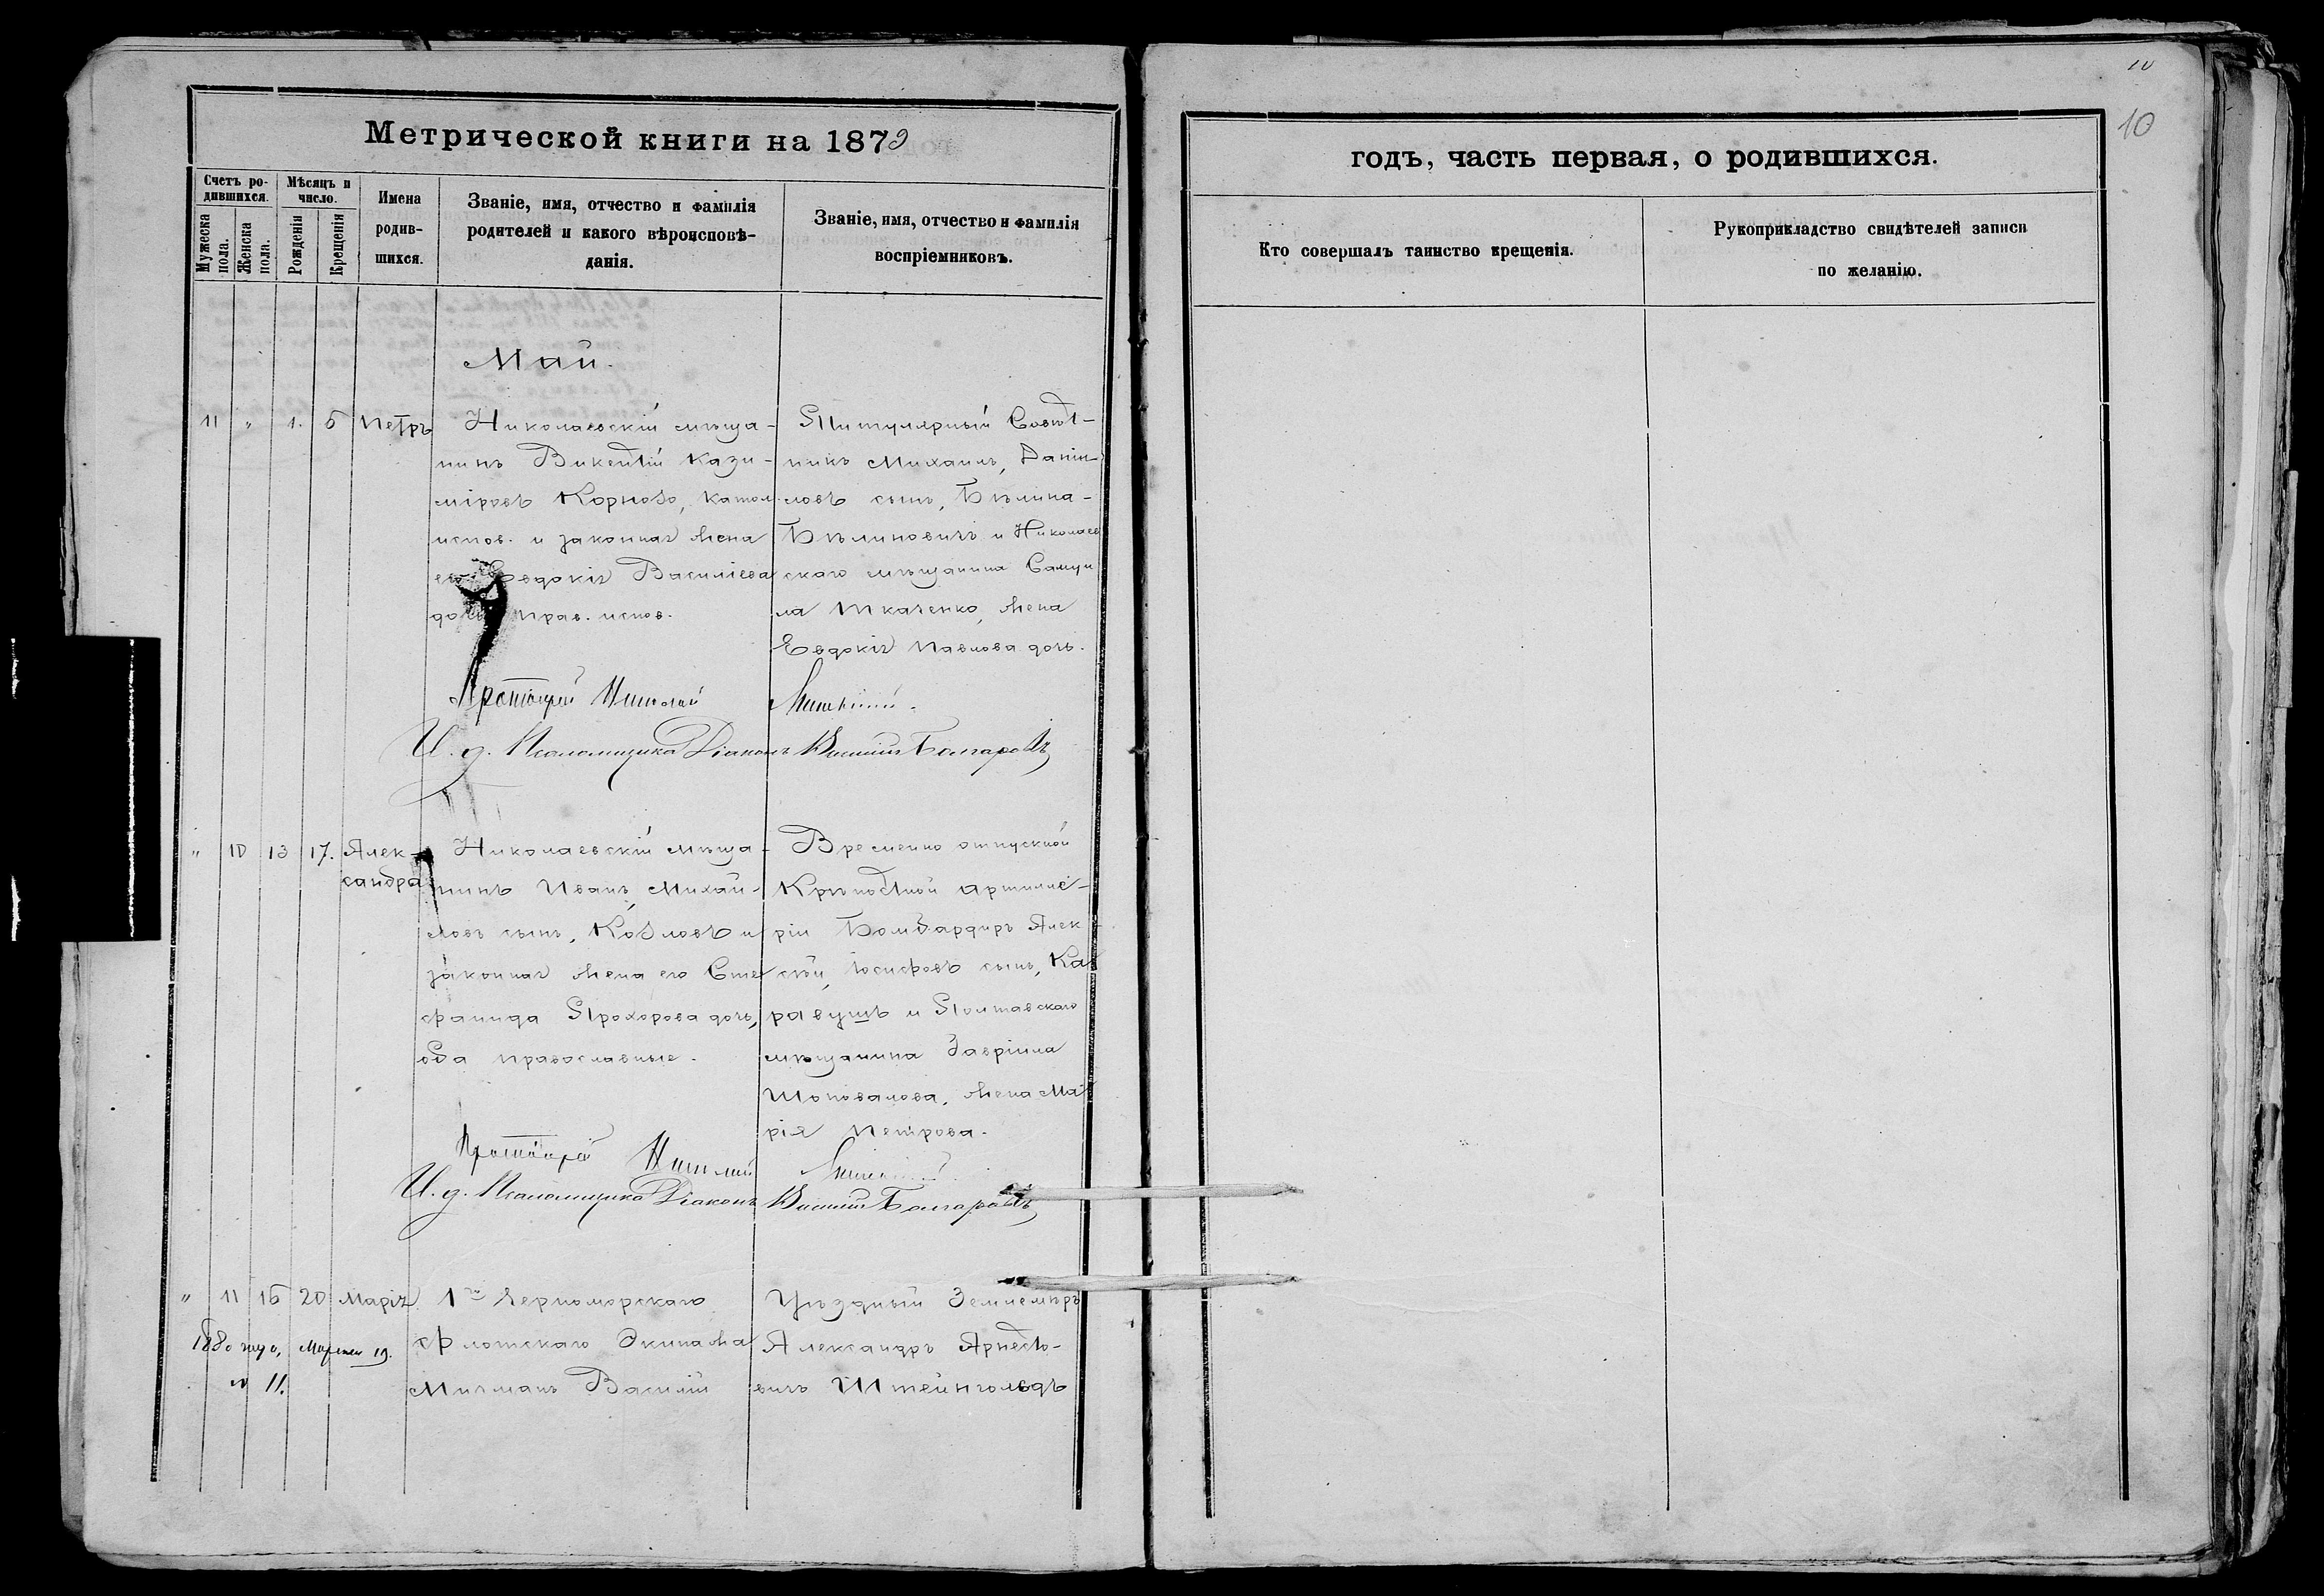 10
10
Метрической книги на 1879
годъ, часть первая, о родившихся.
Счетъ ро-
дившихся.
Мѣсяцъ и
число.
Мужеска
пола.
Женска
пола.
Рожденія
Крещенія
Имена
родив-
шихся.
Званіе, имя, отчество и фамилія
родителей и какого вѣроисповѣ-
данія.
Званіе, имя, отчество и фамилія
воспріемниковъ.
Кто совершалъ таинство крещенія.
Рукоприкладство свидѣтелей записи
по желанію.
Май.
11 " 1. 5 Петръ
Николаевскій мѣща-
нинъ Викентій Кази-
міровъ Корнозо, катол.
испов. и законная жена
его Евдокія Васильева
дочь прав. испов.
Титулярный Совѣт-
никъ Михаилъ, Даніи-
ловъ сынъ, Бѣлина-
Бѣлиновичъ и Николаев
скаго мѣщанина Самуи
ла Ткаченко, жена
Евдокія Павлова дочь.
Протоіерей Николай
И. д. Псаломщика Діаконъ Василій Болгаровъ
" 10 13 17. Алек-
сандра
Николаевскій мѣща-
нинъ Иванъ, Михай-
ловъ сынъ, Козловъ и
законная жена его Сте
фанида Прохорова дочь,
оба православные.
Временно отпускной
Крѣпостной артилле-
ріи Бомбардиръ Алек
сѣй, Іосифовъ сынъ, Ка
равушъ и Полтавскаго
мѣщанина Гавріила
Шоповалова, жена Ма
рія Петрова.
Протоіерей Николай
И. д. Псаломщика Діаконъ Василій Болгаровъ
" 11 16 20 Марія
1880 года, Марта 19.
№ 11.
1го Черноморскаго
Флотскаго Экипажа
Мичманъ Василій
Уѣздный Землемѣръ
Александръ Арнесто-
вичъ Штейнгольдъ